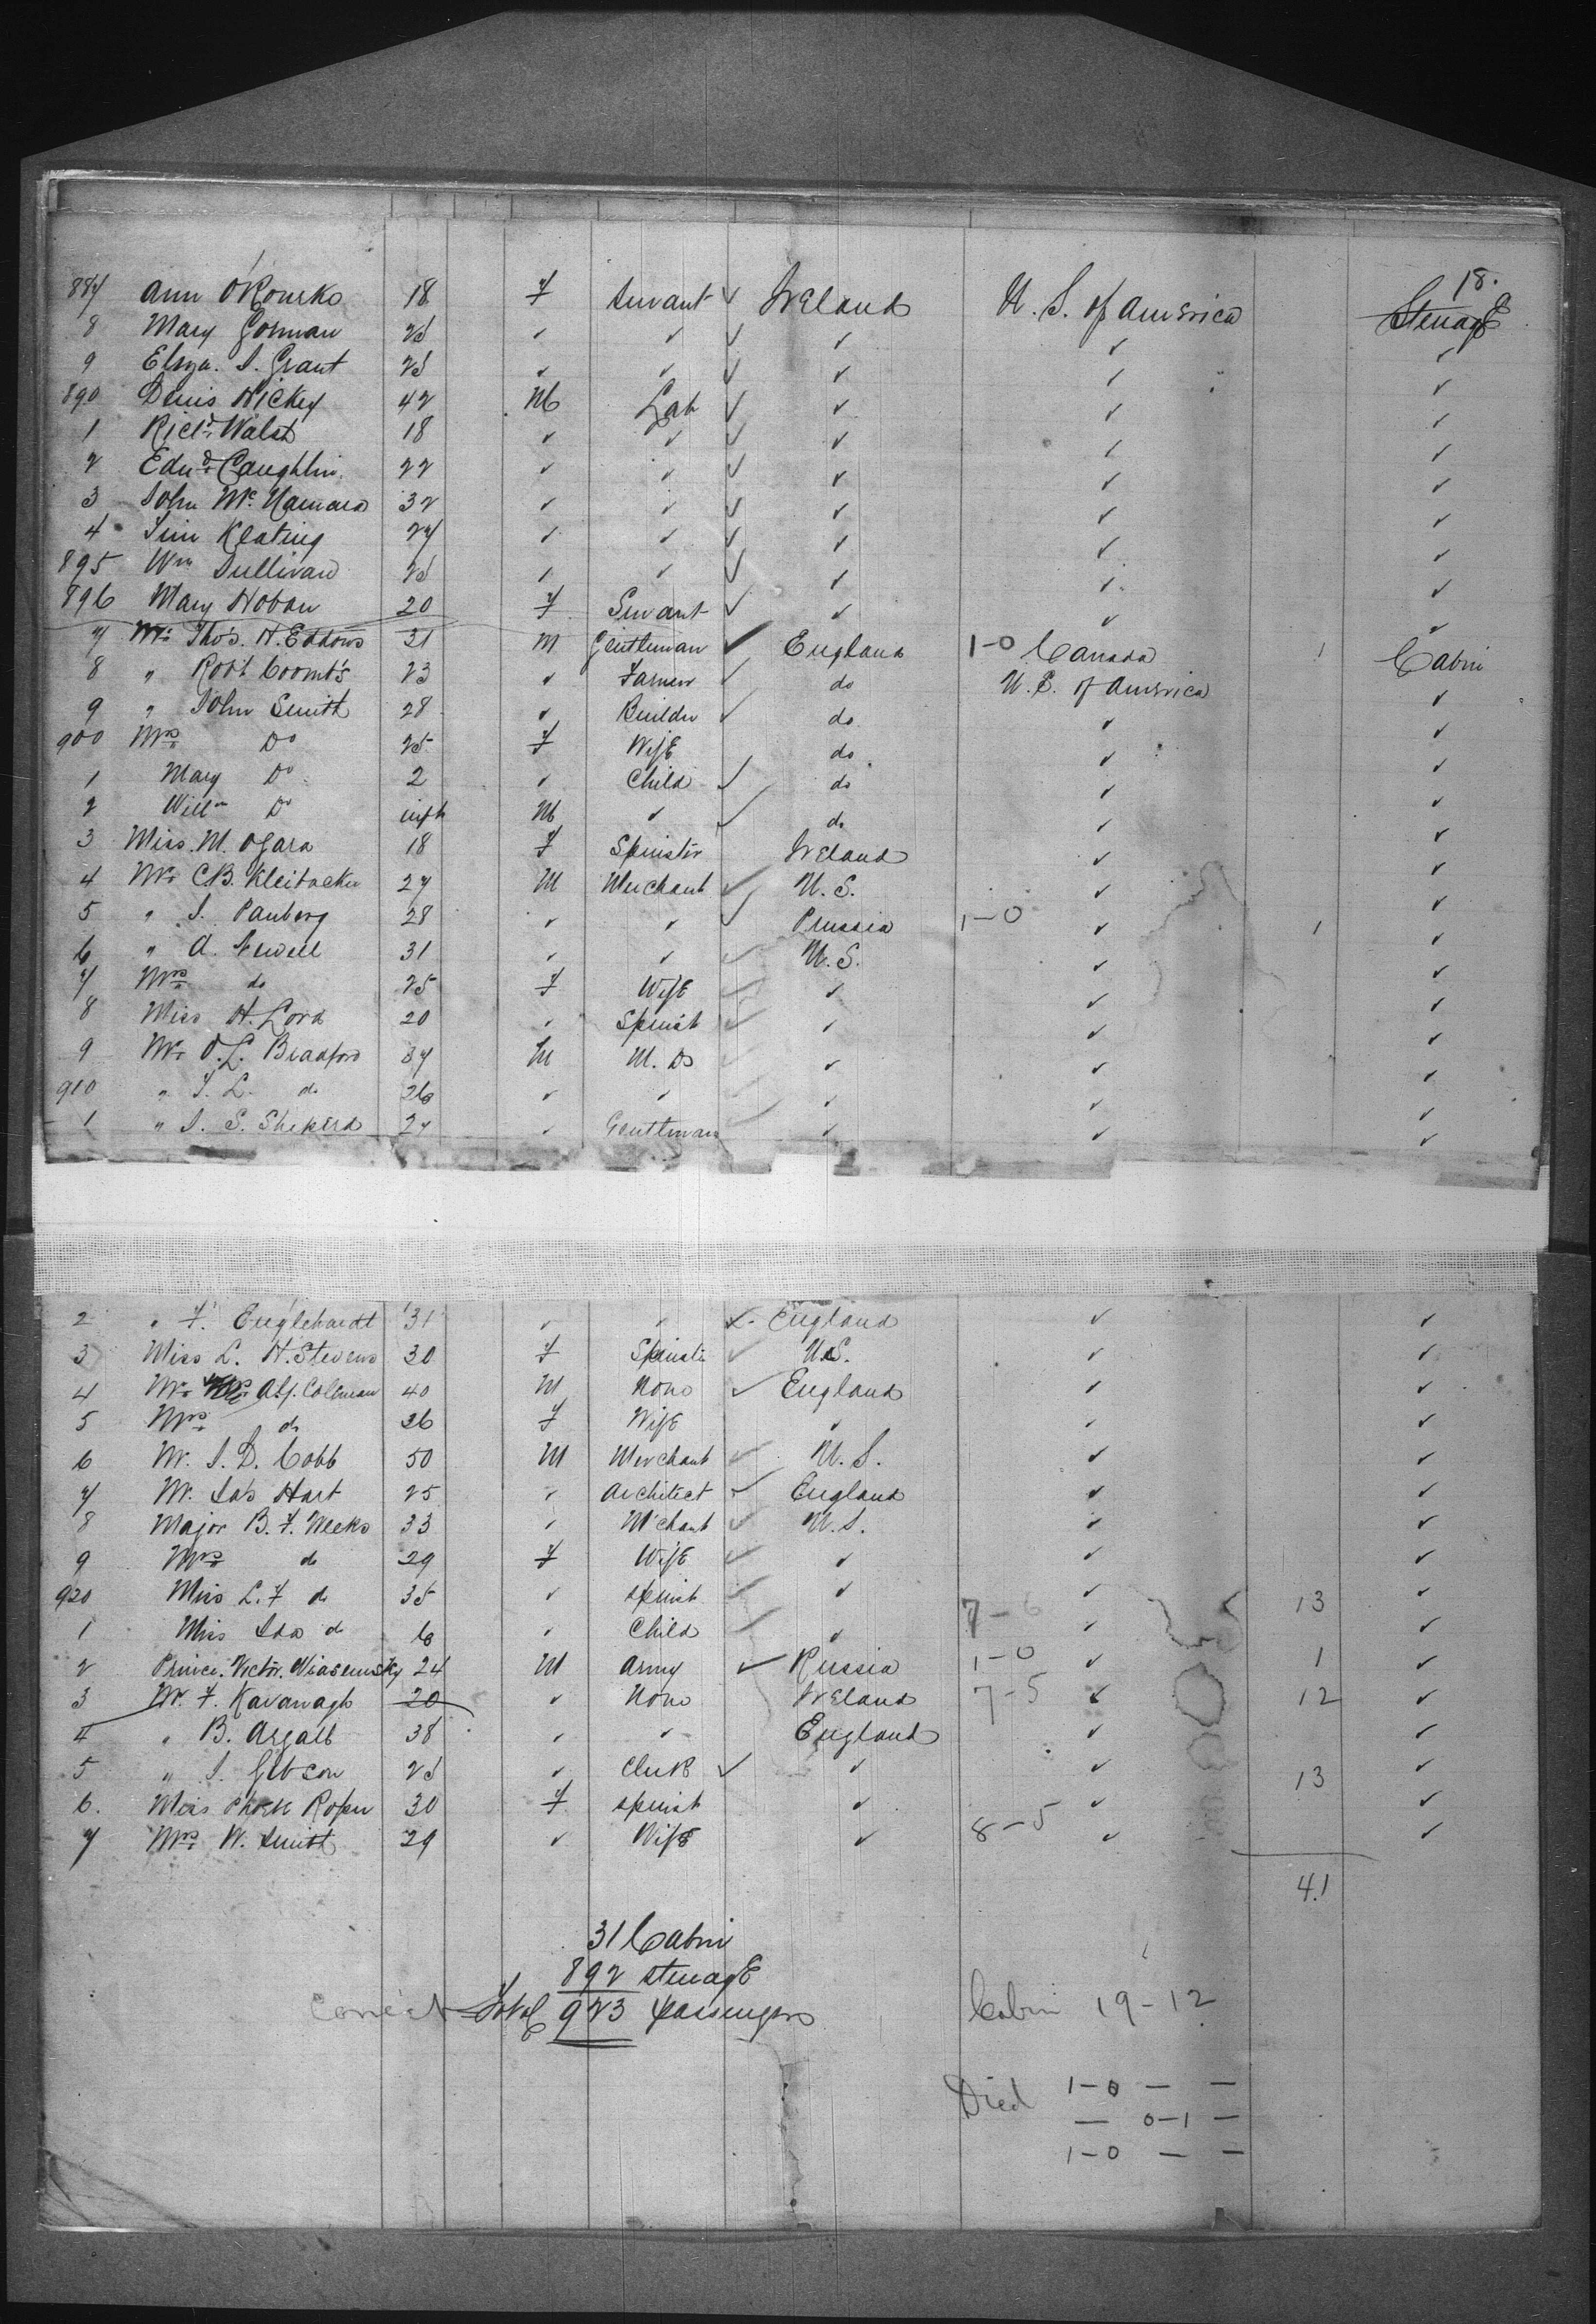 18.
887 Ann O'Rourke 18 F Servant ✓ Ireland U. S. of America Steerage
8 Mary Gorman 25 ✓ ✓ ✓ ✓ ✓ ✓
9 Eliza. J. Grant 25 ✓ ✓ ✓ ✓ ✓ ✓
890 Denis Hickey 42 M Lab ✓ ✓ ✓ ✓
1 Richd. Walsh 18 ✓ ✓ ✓ ✓ ✓ ✓
2 Edwd. Caughlin 22 ✓ ✓ ✓ ✓ ✓ ✓
3 John McNamara 32 ✓ ✓ ✓ ✓ ✓ ✓
4 Tim Keating 27 ✓ ✓ ✓ ✓ ✓ ✓
895 Wm Sullivan 25 ✓ ✓ ✓ ✓ ✓ ✓
896 Mary Hoban 20 F Servant ✓ ✓ ✓ ✓
7 Mr. Thos. H. Eddows 31 M Gentleman ✓ England 1-0 Canada 1 Cabin
8 " Robt Coombs 23 ✓ Farmer ✓ do U. S. of America ✓
9 " John Smith 28 ✓ Builder ✓ do ✓ ✓
900 Mrs Do 25 F Wife do ✓ ✓
1 Mary Do 2 ✓ Child ✓ do ✓ ✓
2 Willm Do inft M ✓ ✓ do ✓ ✓
3 Miss. M. Ogara 18 F Spinster Ireland ✓ ✓
4 Mr. C.B. 27 M Merchant ✓ U. S. ✓ ✓
5 " J. Panberg 28 ✓ ✓ ✓ Prussia 1-0 ✓ 1 ✓
6 " A. Newell 31 ✓ ✓ ✓ U. S. ✓ ✓
7 Mrs do 25 F Wife ✓ ✓ ✓ ✓
8 Miss H. Lord 20 ✓ Spinst ✓ ✓ ✓ ✓
9 Mr. O. L. Bradford 37 M M. D ✓ ✓ ✓ ✓
910 " T. L. do 26 ✓ ✓ ✓ ✓ ✓ ✓
1 " J. S. Sheperd 27 ✓ Gentleman ✓ ✓ ✓ ✓
2 " F. Englehardt 31 ✓ ✓ ✓ England ✓ ✓
3 Miss L. H. Stevens 30 F Spinste ✓ U.S. ✓ ✓
4 Mr. Alf. Coleman 40 M None ✓ England ✓ ✓
5 Mrs do 26 F Wife ✓ ✓ ✓
6 Mr. J. D. Cobb 50 M Merchant ✓ U. S. ✓ ✓
7 Mr. Jas Hart 25 ✓ Architect ✓ England ✓ ✓
8 Major B. F. Weeks 33 ✓ Mchant ✓ U. S. ✓ ✓
9 Mrs do 29 F Wife ✓ ✓ ✓ ✓
920 Miss L. F do 35 ✓ spinst ✓ ✓ 7-6 ✓ 13 ✓
1 Miss Ida do 6 ✓ Child ✓ ✓ ✓ ✓
2 Prince. Victor. Wiasemsky 24 M Army ✓ Russia 1-0 ✓ 1 ✓
3 Mr. F. Kavanagh 20 ✓ None Ireland 7-5 ✓ 12 ✓
4 " B. Argall 38 ✓ ✓ England ✓ ✓
5 " J. Gibson 25 ✓ Clerk ✓ ✓ ✓ 13 ✓
6. Miss Roper 30 F spinst ✓ ✓ ✓
7 Mrs. W. Smith 29 ✓ Wife ✓ 8-5 ✓ ✓
41
31 Cabin
892 steerage
Correct Total 923 passengers Cabin 19-12
Died 1-0 — —
— 0-1 —
1-0 — —